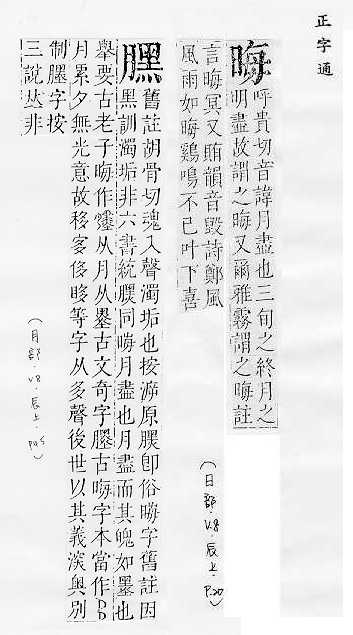 正字通
晦
呼貴切音諱月盡也三旬之終月之
明盡故謂之晦又爾雅霧謂之晦註
言晦冥又賄韻音毀詩鄭風
風雨如晦鷄鳴不已叶下喜
(日部.V.8.辰上.P.20)
舊註胡骨切魂入聲濁垢也按游原卽俗晦字舊註因
黑訓濁垢非六書統同晦月盡也月盡而其魄如墨也
舉要古老子晦作从月从墨古文奇字古晦字本當作
月累夕無光意故移侈等字从多聲後世以其義湥與別
制字按
三說𠀤非
(月部.V.8.辰上.P45)